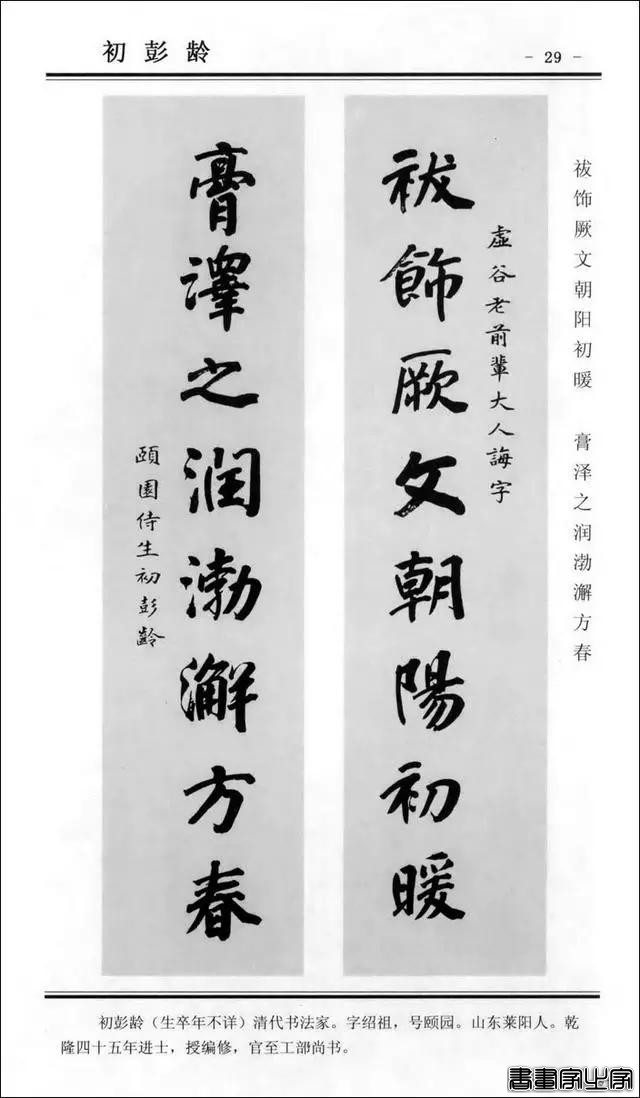 初彭龄
- 29 -
祓饰厥文朝阳初暖 膏泽之润渤澥方春
祓飾厥文朝陽初暖
虛谷老前輩大人誨字
膏澤之润渤澥方春
頤園侍生初彭齡
初彭龄（生卒年不详）清代书法家。字绍祖，号颐园。山东莱阳人。乾
隆四十五年进士，授编修，官至工部尚书。
書畫家必字